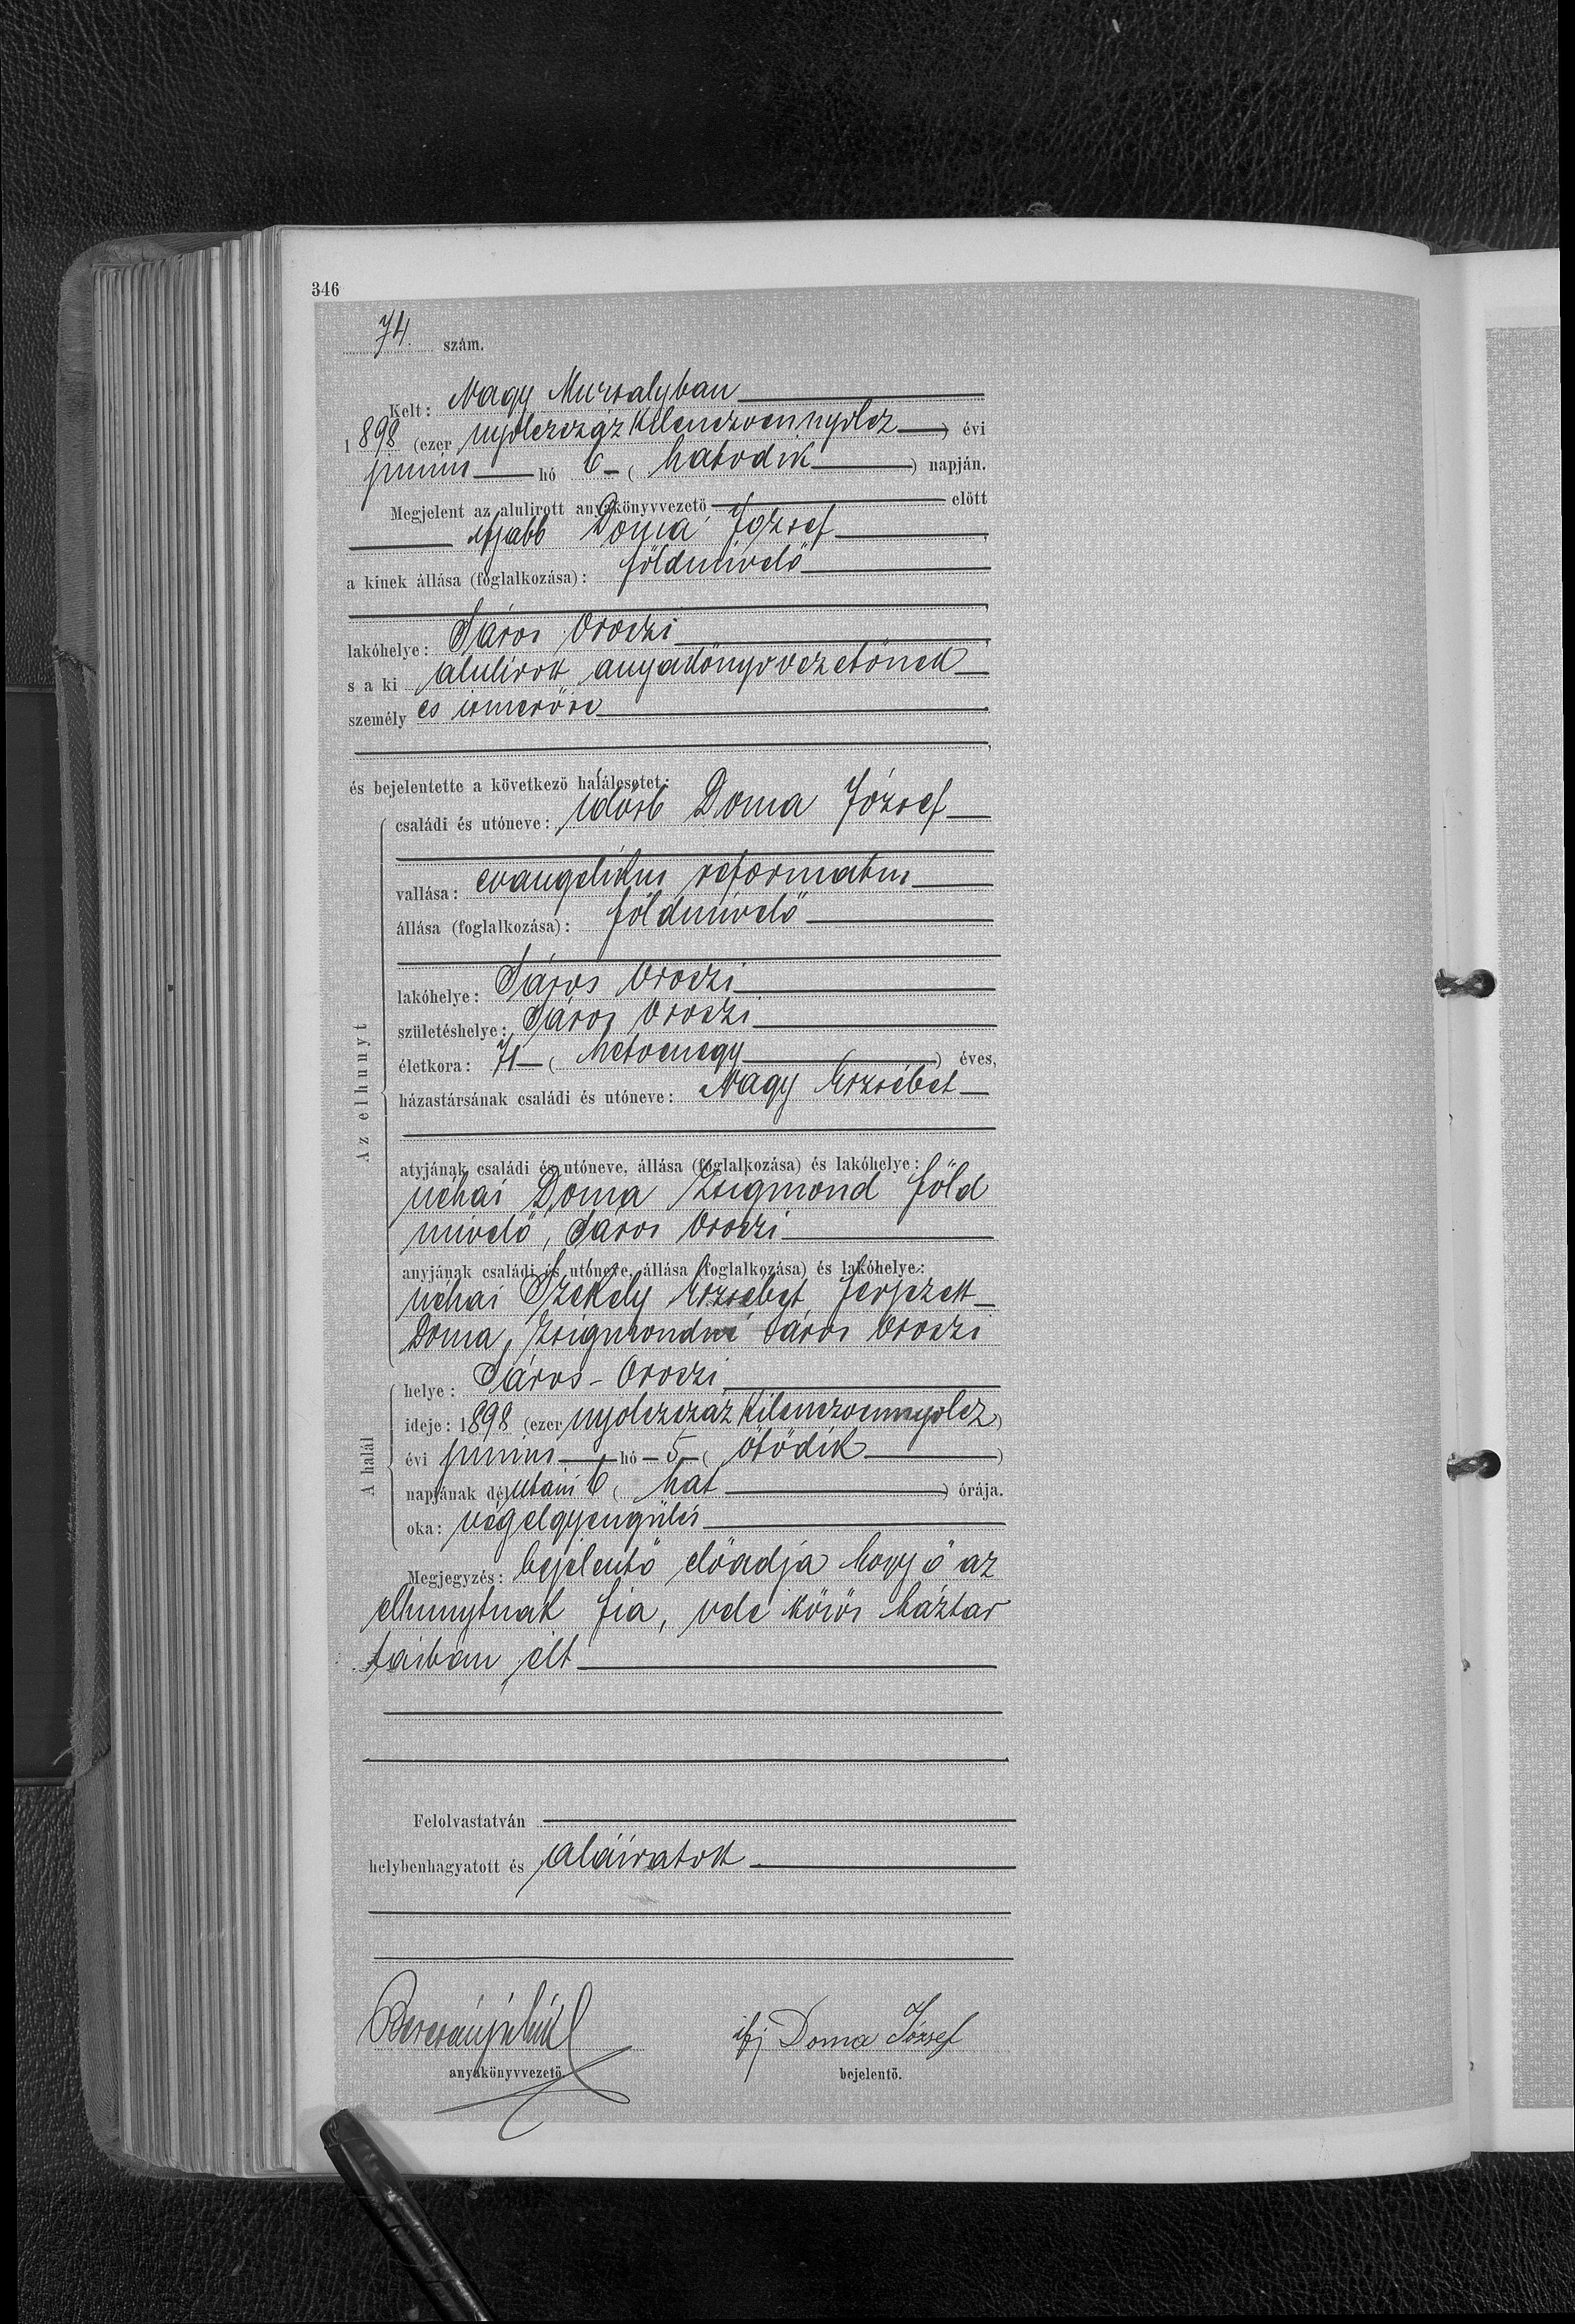 346
74. szám.
Kelt: Nagy Muzsalyban
1898 (ezer nyolczszáz kilenczvennyolcz) évi
junius hó 6 (hatodik) napján.
Megjelent az alulirott anyakönyvvezető előtt
ifjabb Doma József,
a kinek állása (foglalkozása): földmivelő
lakóhelye: Sáros Oroszi,
s a ki alulirott anyakönyvvezetőnek
személyes ismerőse,
és bejelentette a következő halálesetet:
Az elhunyt
családi és utóneve: idősb Doma József
vallása: evangelikus reformatus
állása (foglalkozása): földmivelő
lakóhelye: Sáros Oroszi
születéshelye: Sáros Oroszi
életkora: 71 (hetvenegy) éves,
házastársának családi és utóneve: Nagy Erzsébet
atyjának családi és utóneve, állása (foglalkozása) és lakóhelye:
néhai Doma Zsigmond föld
mivelő, Sáros Oroszi
anyjának családi és utóneve, állása (foglalkozása) és lakóhelye:
néhai Székely Erzsébet, férjezett
Doma Zsigmondné Sáros Oroszi
A halál
helye: Sáros-Oroszi
ideje: 1898 (ezer nyolczszáz kilenczvennyolcz)
évi junius hó 5 (ötödik)
napjának délutáni 6 (hat) órája.
oka: végelgyengülés
Megjegyzés: bejelentő előadja hogy ő az
elhunytnak fia, vele közös háztar
tásban élt
Felolvastatván
helybenhagyatott és aláiratott
anyakönyvvezető.
ifj Doma József
bejelentő.